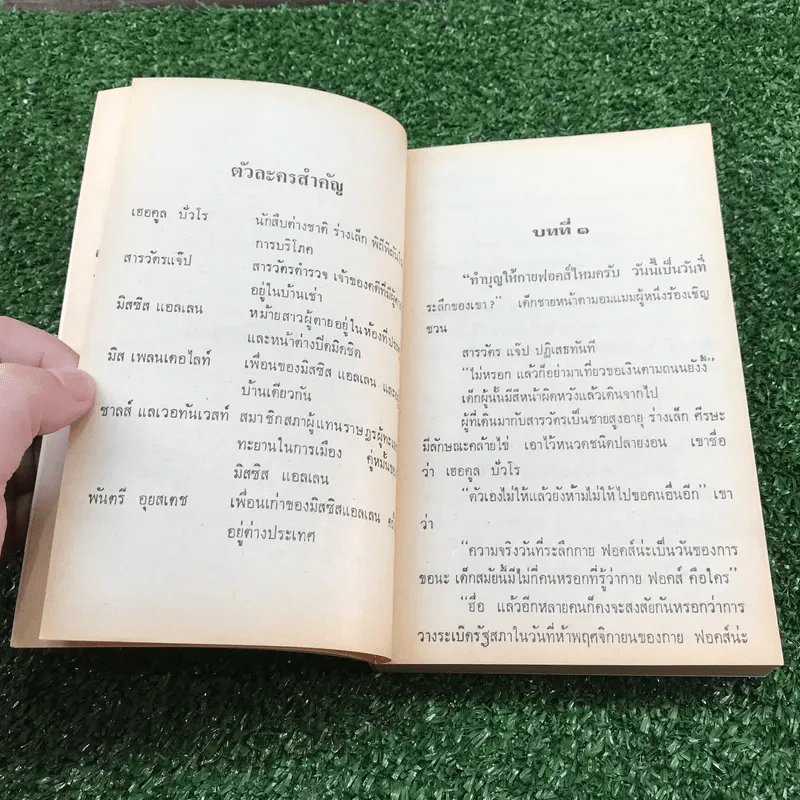 ตัวละครสำคัญ
เฮอคูล ปัวโร นักสืบต่างชาติ ร่างเล็ก พิถีพิถันใน
การบริโภค
สารวัตรแจ๊ป สารวัตรตำรวจ เจ้าของคดีที่มีผู้ตาย
อยู่ในบ้านเช่า
มิสซิส แอลเลน หม้ายสาวผู้ตายอยู่ในห้องที่
และหน้าต่างปิดมิดชิด
มิส เพลนเดอไลท์ เพื่อนของมิสซิส แอลเลน
บ้านเดียวกัน
ชาลส์ แลเวอทันเวสท์ สมาชิกสภาผู้แทนราษฎรผู้ทะเยอ
ทะยานในการเมือง คู่หมั้น
มิสซิส แอลเลน
พันตรี อุยสเตช เพื่อนเก่าของมิสซิสแอลเลน
อยู่ต่างประเทศ
บทที่ ๑
“ทำบุญให้กายฟอคส์ไหมครับ วันนี้เป็นวันที่
ระลึกของเขา?” เด็กชายหน้าตามอมแมมผู้หนึ่งร้องเชิญ
ชวน
สารวัตร แจ๊ป ปฏิเสธทันที
“ไม่หรอก แล้วก็อย่ามาเที่ยวขอเงินตามถนนยังงี้”
เด็กผู้นั้นมีสีหน้าผิดหวังแล้วเดินจากไป
ผู้ที่เดินมากับสารวัตรเป็นชายสูงอายุ ร่างเล็ก ศีรษะ
มีลักษณะคล้ายไข่ เอาไว้หนวดชนิดปลายงอน เขาชื่อ
ว่า เฮอคูล ปัวโร
“ตัวเองไม่ให้แล้วยังห้ามไม่ให้ไปขอคนอื่นอีก” เขา
ว่า
“ความจริงวันที่ระลึกกาย ฟอคส์น่ะเป็นวันของการ
ขอนะ เด็กสมัยนี้มีไม่กี่คนหรอกที่รู้ว่ากาย ฟอคส์ คือใคร”
“ฮื่อ แล้วอีกหลายคนก็คงจะสงสัยกันหรอกว่าการ
วางระเบิดรัฐสภาในวันที่ห้าพฤศจิกายนของกาย ฟอคส์น่ะ